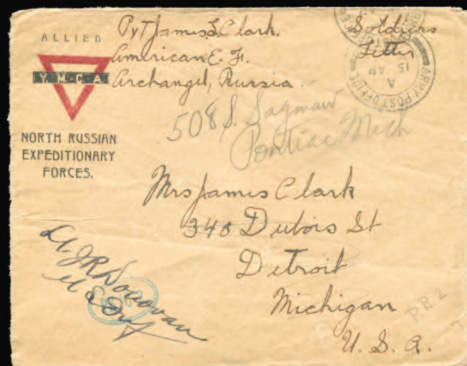 ALLIED
Y.M.C.A
NORTH RUSSIAN
EXPEDITIONARY
FORCES.
Pvt James S. Clark.
American E. F.
Archangel, Russia.
Soldiers
Letter
ARMY POST OFFICE
A
15 AP
508 S. Saginaw
Pontiac Mich
Mrs James Clark
340 Dubois St
Detroit
Michigan
U. S. A.
Lt JR Donovan
U S Inf
PB2